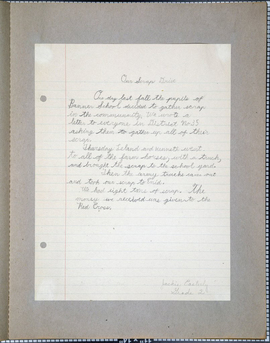 Our Scrap Drive
One day last fall the pupils of
Banner School decided to gather scrap
in the community. We wrote a
letter to everyone in District No.
asking them to gather up all of their
scrap.
Thursday and went
to all of the farm homes with a truck
and brought the scrap to the school yard.
Then the army trucks came out
and took our scrap to
We had eight tons of scrap. The
money we received was given to the
Red Cross.
Grade